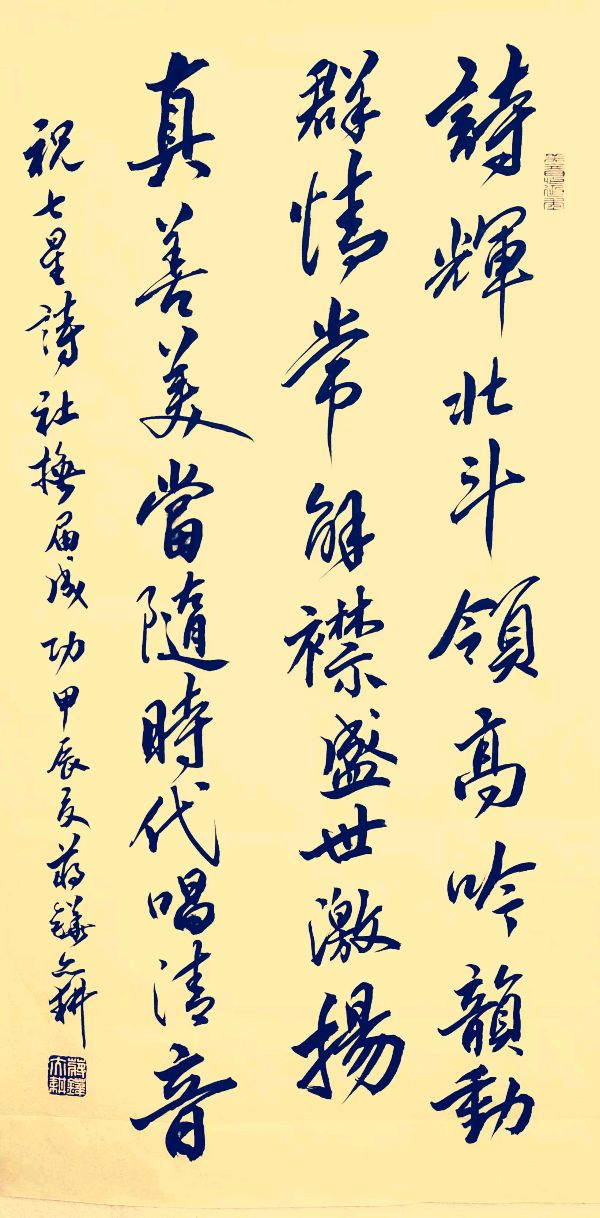 詩輝北斗領高吟韻動
群情常解襟盛世激揚
真善美當隨時代唱清音
祝七星詩社換届成功甲辰夏蔣鐵之耕